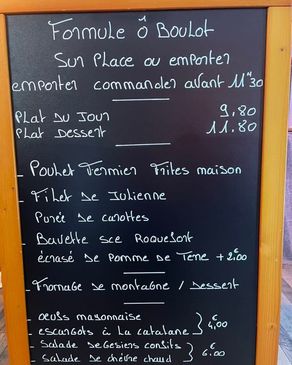 Formule Ô Boulot
Sur Place ou emporter
emporter commander avant 11H30
Plat du Jour 9.80
Plat Dessert 11.80
- Poulet Fermier Frites maison
- Filet de Julienne
Purée de carottes
- Bavette sce Roquefort
écrasé de pomme de Terre + 2€00
- Fromage de montagne / Dessert
- oeufs mayonnaise
- escargots à la catalane } 4€,00
- Salade de Gesiers confits
- Salade de chèvre chaud } 6€.00